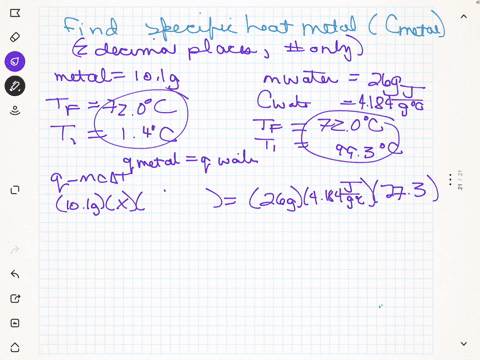 Find specific heat metal (Cmetal)
(2 decimal places, # only)
metal = 10.1g
mwater = 26g
Cwater = 4.184 J/g°C
TF = 72.0°C
Ti = 1.4°C
TF = 72.0°C
Ti = 99.3°C
qmetal = qwater
q = mCΔT
(10.1g)(x)( ) = (26g)(4.184 J/g°C)(27.3)
21 / 21